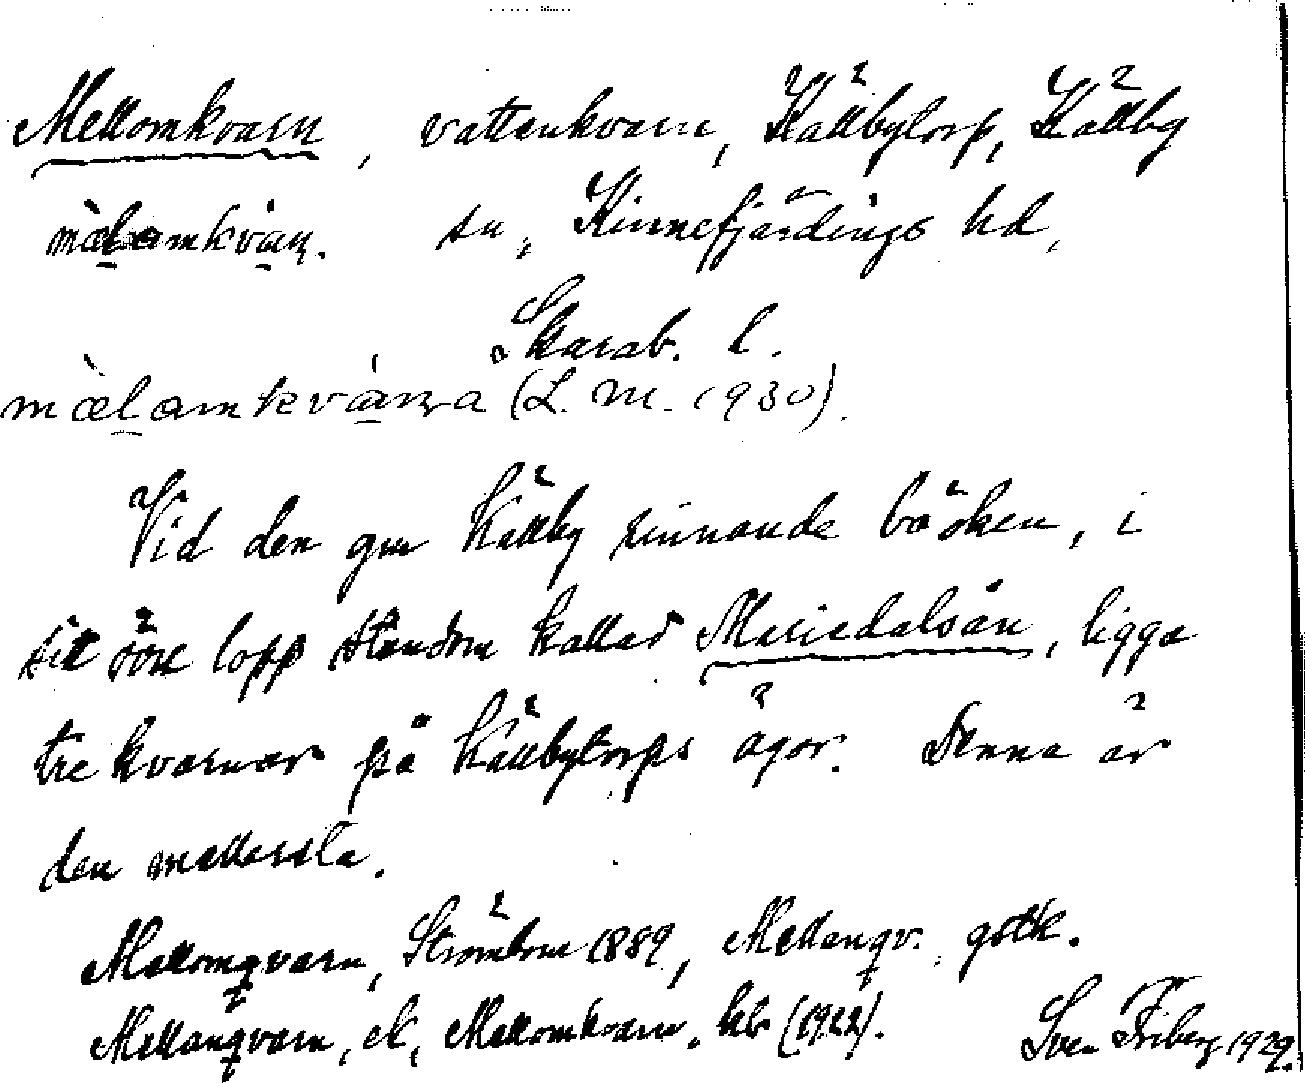 Mellomkvarn, vattenkvarn, Källbytorp, Källby
mæ̀lamkván. sn, Kinnefjärdings hd,
Skarab. l.
mæ̀lamkvána (L. M. 1930).
Vid den gm Källby rinnande bäcken, i
sitt övre lopp stundom kallad Mariedalsån, ligga
tre kvarnar på Källbytorps ägor. Denna är
den mellersta.
Mellomqvarn, Strömbom 1889, Mellanqv. gstk.
Mellanqvarn, ek, Mellomkvarn, hb (1922). Sven Friberg 1929.